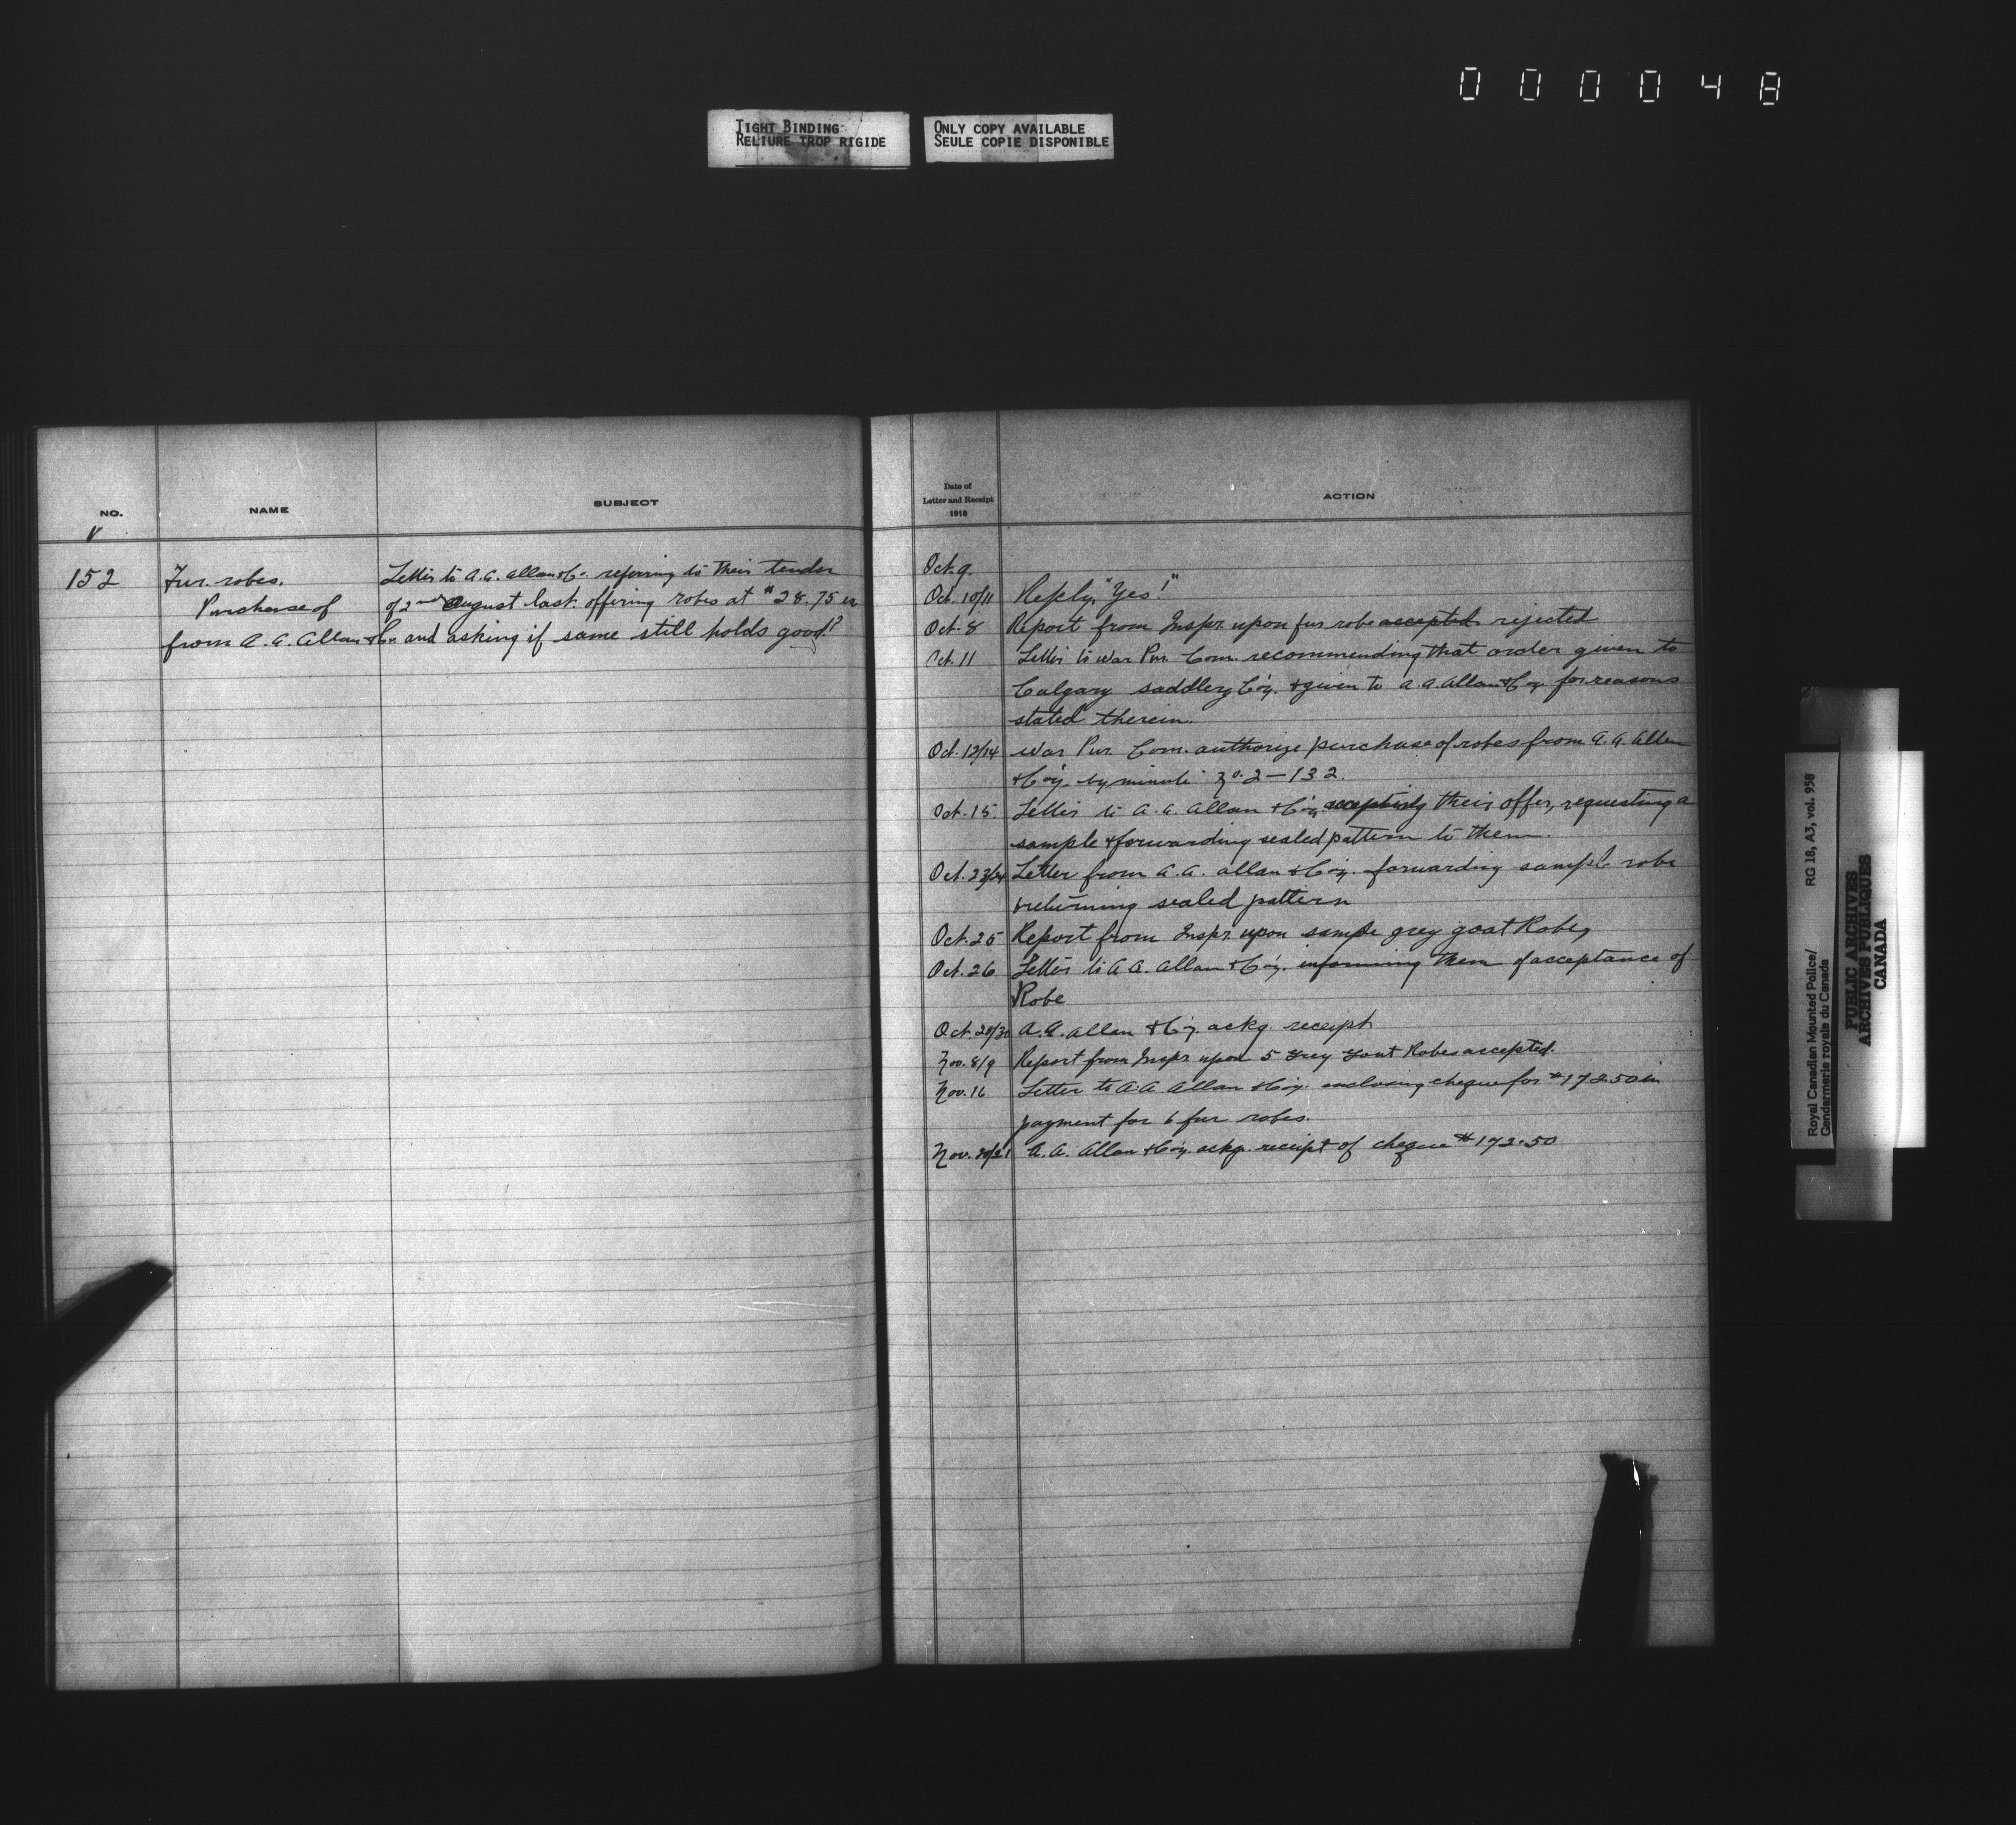 000048
TIGHT BINDING
RELIURE TROP RIGIDE
ONLY COPY AVAILABLE
SEULE COPIE DISPONIBLE
NO.
NAME
SUBJECT
V
152
Fur. robes.
Purchase of
from A. A. Allan & Co.
Letter to A. A. Allan & Co. referring to their tender
of 2nd August last offering robes at $28.75 ea
and asking if same still holds good?
Date of
Letter and Receipt
1918
ACTION
Oct. 9.
Oct. 10/11 Reply, "Yes!"
Oct. 8 Report from Inspr. upon fur robe accepted rejected
Oct. 11 Letter to War Pur. Com. recommending that order given to
Calgary Saddlery Co'y. & given to A. A. Allan & Coy for reasons
stated therein.
Oct. 12/14 War Pur. Com. authorize purchase of robes from A. A. Allan
& Co'y. by minute No. 2-132.
Oct. 15. Letter to A. A. Allan & Co'y. accepting their offer, requesting a
sample & forwarding sealed pattern to them.
Oct. 23/24 Letter from A. A. Allan & Co'y. forwarding sample robe
& returning sealed pattern
Oct. 25 Report from Inspr. upon sample grey goat Robe,
Oct. 26 Letter to A A. Allan & Co'y. informing them of acceptance of
Robe
Oct. 28/30 A. A. Allan & Co'y. ackg. receipt
Nov. 8/9 Report from Inspr. upon 5 Grey Goat Robes accepted.
Nov. 16 Letter to A. A. Allan & Co'y. enclosing cheque for $172.50 in
payment for 6 fur robes.
Nov. 20/21 A. A. Allan & Co'y. ackg. receipt of cheque $172.50
Royal Canadian Mounted Police/
Gendarmerie royale du Canada
RG 18, A3, vol. 958
PUBLIC ARCHIVES
ARCHIVES PUBLIQUES
CANADA